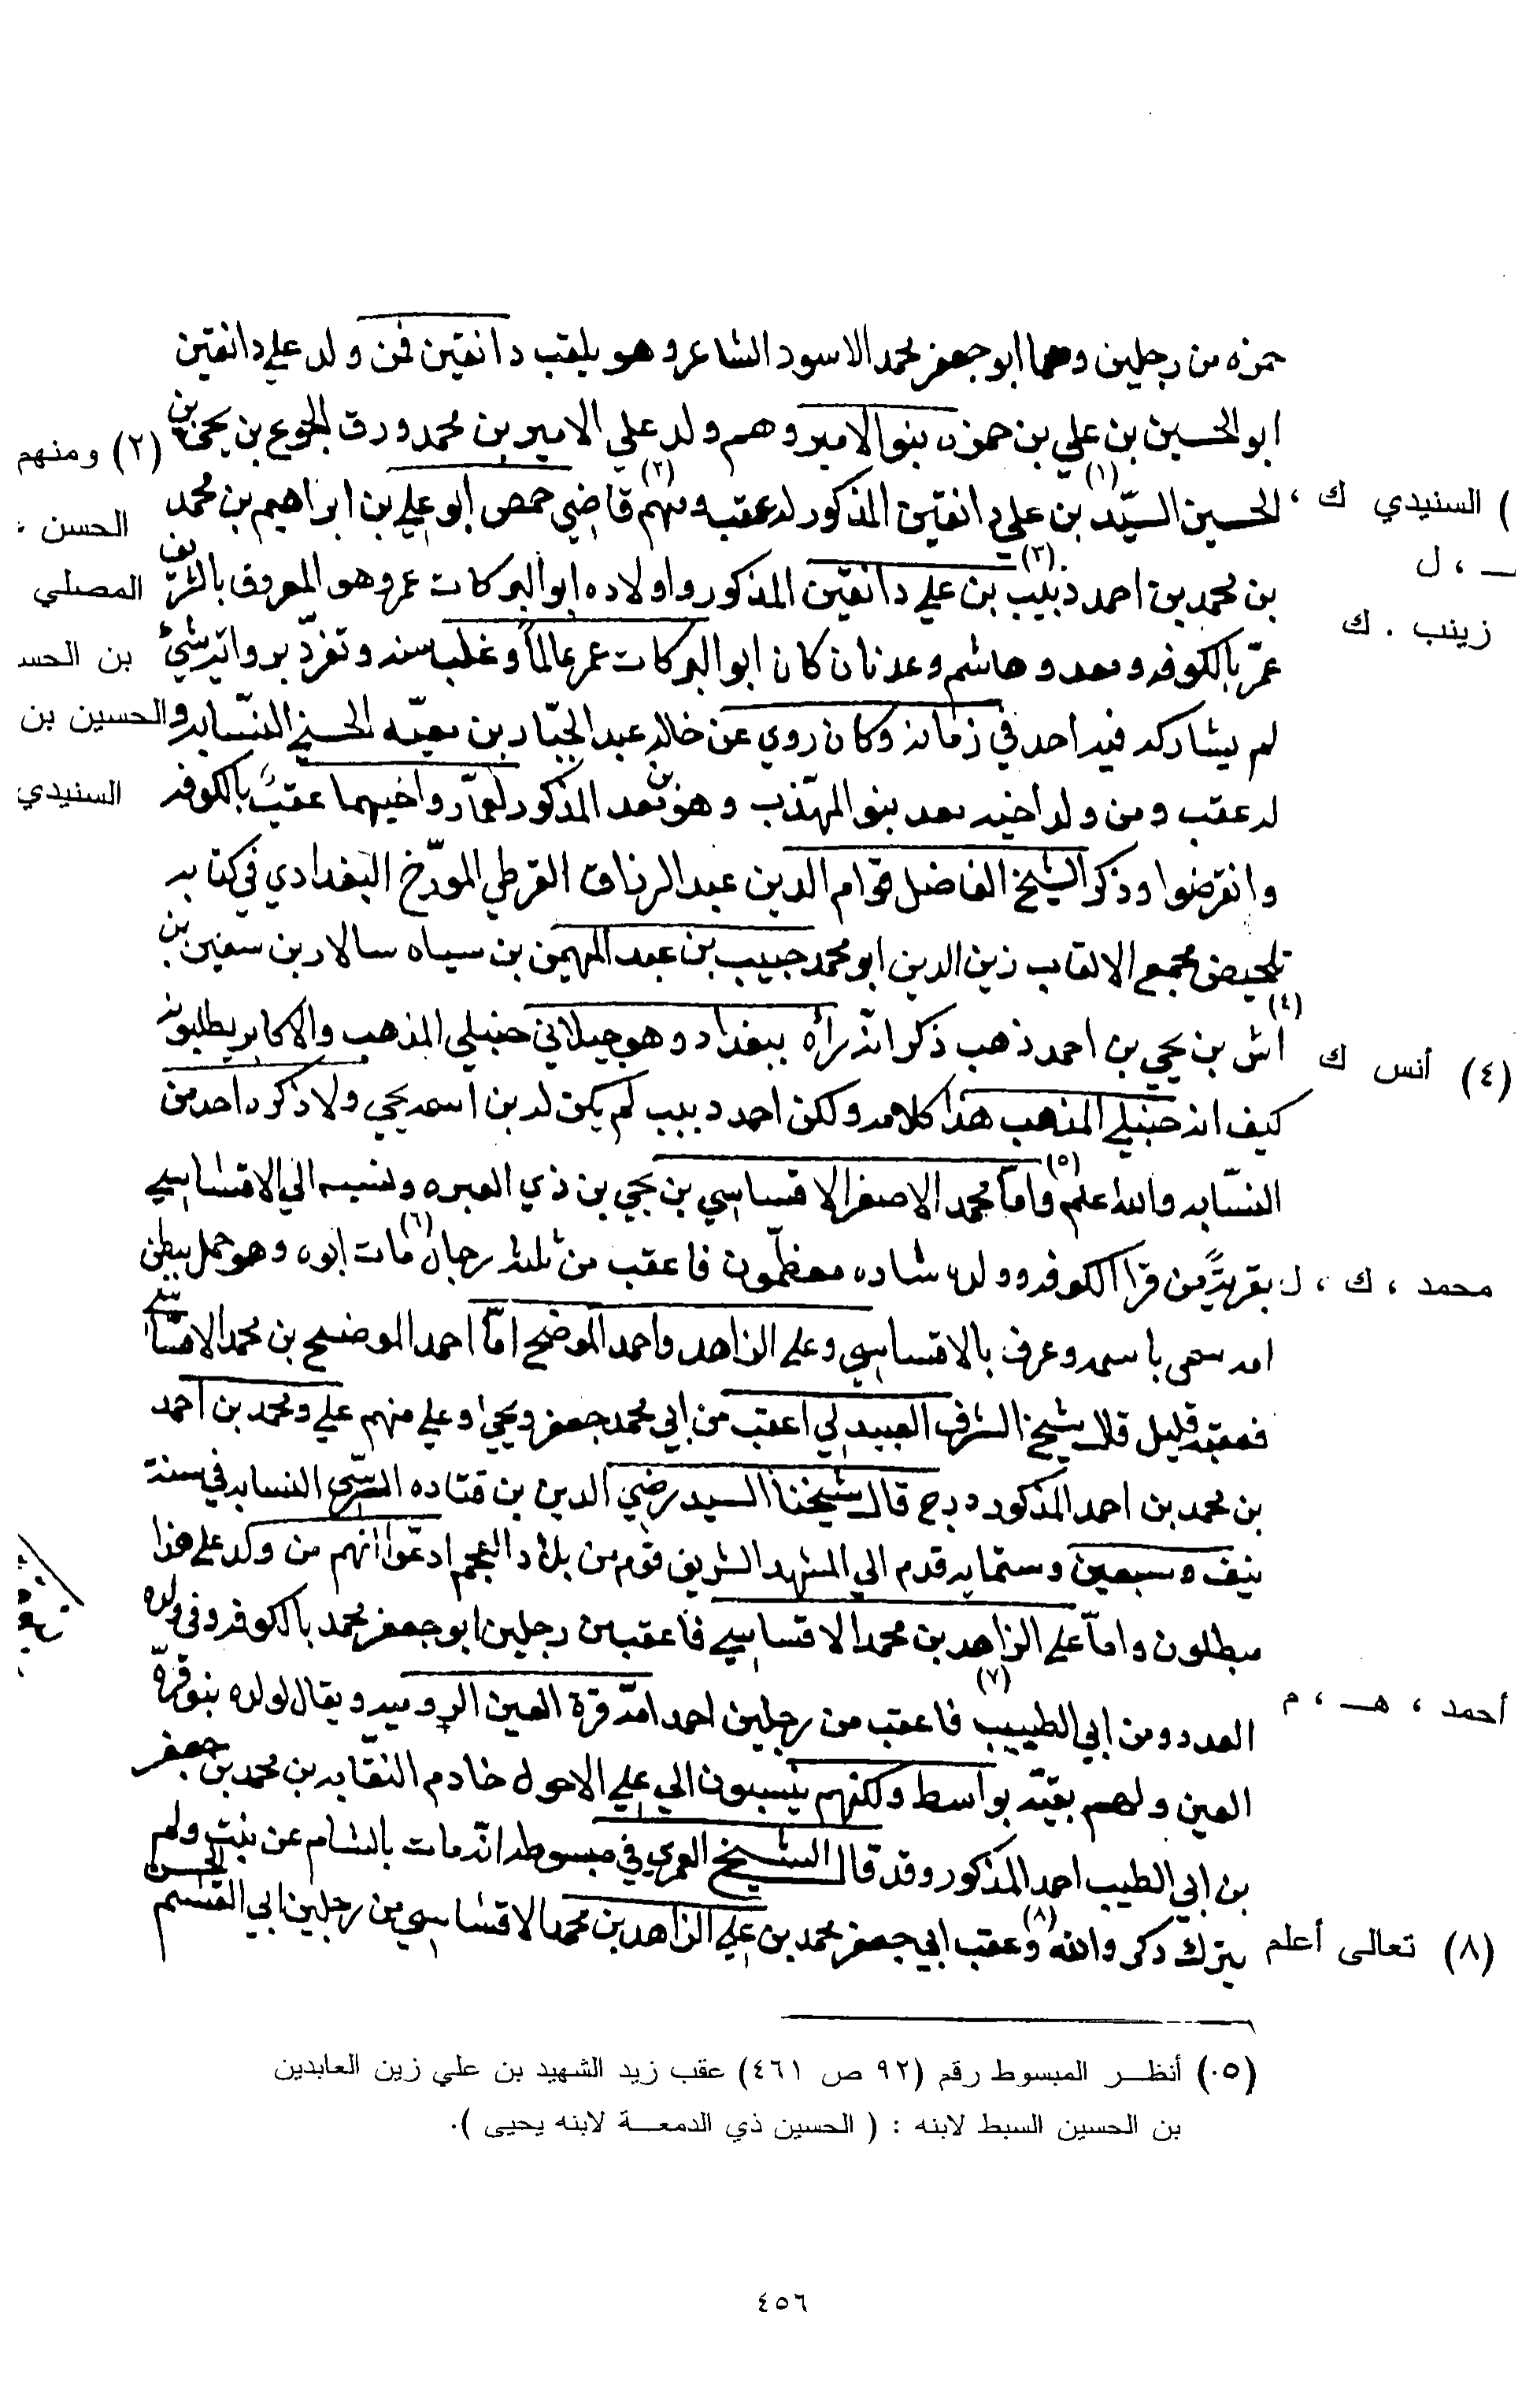 حمزه من رجلين وهما ابو جعفر محمد الاسود الشاعر وهو يلقب دانقين فمن ولد علي دانقين
ابو الحسين بن علي بن حمزه بنو الامير وهم ولد علي الامير بن محمد ورق الجوع بن يحيى بن
الحسين السيّد (١) بن علي دانقين المذكور له عقب ومنهم (٢) قاضي حمص ابو علي بن ابراهيم بن محمد
بن محمد بن احمد ذبيب (٣) بن علي دانقين المذكور واولاده ابو البركات عمر وهو المعروف بالشريف
عمر بالكوفه ومعد وهاشم وعدنان كان ابو البركات عمر عالماً وغلب سنه وتفرّد بروايته شئ
لم يشاركه فيه احد في زمانه وكان روي عن خاله عبد الجبّار بن معيّه الحسني النسّابه و
له عقب ومن ولد اخيه معد بنو المهذب وهو بن معد المذكور لعمار واخيهما عقب بالكوفه
وانقرضوا وذكر الشيخ الفاضل قوام الدين عبد الرزاق القرطي المورّخ البغدادي في كتابه
تلخيص مجمع الالقاب زين الدين ابو محمد حبيب بن عبد المهيمن بن سياه سالار بن سفين بن
اش (٤) بن يحيي بن احمد ذهب ذكر انه رأه ببغداد وهو جيلاني حنبلي المذهب والاكابر يطلبونه
كيف انه حنبلي المذهب هذا كلامه ولكن احمد دبيب لم يكن له بن اسمه يحيي ولا ذكره احد من
النسّابه والله اعلم (٥) وامّا محمد الاصغر الاقساسي بن يحيي بن ذي العبره ونسبه الي الاقساسي
بقريةٍ من قرا الكوفه وولده ساده معظّمون فاعقب من ثلثه رجال (٦) مات ابوه وهو حمل ببطن
امه سمي باسمه وعرف بالاقساسي وعلي الزاهد واحمد الموضح امّا احمد الموضح بن محمد الاقساسي
فعقبه قليل قال شيخ الشرف العبيدلي اعقب من ابي محمد جعفر ويحيي وعلي منهم علي ومحمد بن احمد
بن محمد بن احمد المذكور درج قال شيخنا السيد رضي الدين بن قتاده النسابه في سنة
نيف وسبعين وستمايه قدم الي المشهد الشريف قوم من بلاد العجم ادعّوا انهم من ولد علي هذا
مبطلون وامّا علي الزاهد بن محمد الاقساسي فاعقب من رجلين ابو جعفر محمد بالكوفه وفي ولده
العدد ومن ابي الطيب (٧) فاعقب من رجلين احمد امّه قرة العين الروميه ويقال لولده بنو قرّة
العين ولهم بقيّه بواسط ولكنهم ينسبون الي علي الاحول خادم النقابه بن محمد بن جعفر
بن ابي الطيب احمد المذكور وقد قال الشيخ العمري في مبسوطه انه مات بالشام عن بنت ولم
يترك ذكر والله (٨) وعقب ابي جعفر محمد بن علي الزاهد بن محمد الاقساسي من رجلين ابي القاسم الحسن
) السنيدي ك ،
ـ ، ل
زينب . ك
(٤) أنس ك
محمد ، ك ، ل
أحمد ، هـ ، م
(٨) تعالى أعلم
(٢) ومنهم
الحسن
المصلي
بن الحسـ
الحسين بن
السنيدي
(٥٠) أنظـر المبسوط رقم (٩٢ ص ٤٦١) عقب زيد الشهيد بن علي زين العابدين
بن الحسين السبط لابنه : ( الحسين ذي الدمعــة لابنه يحيى ).
٤٥٦